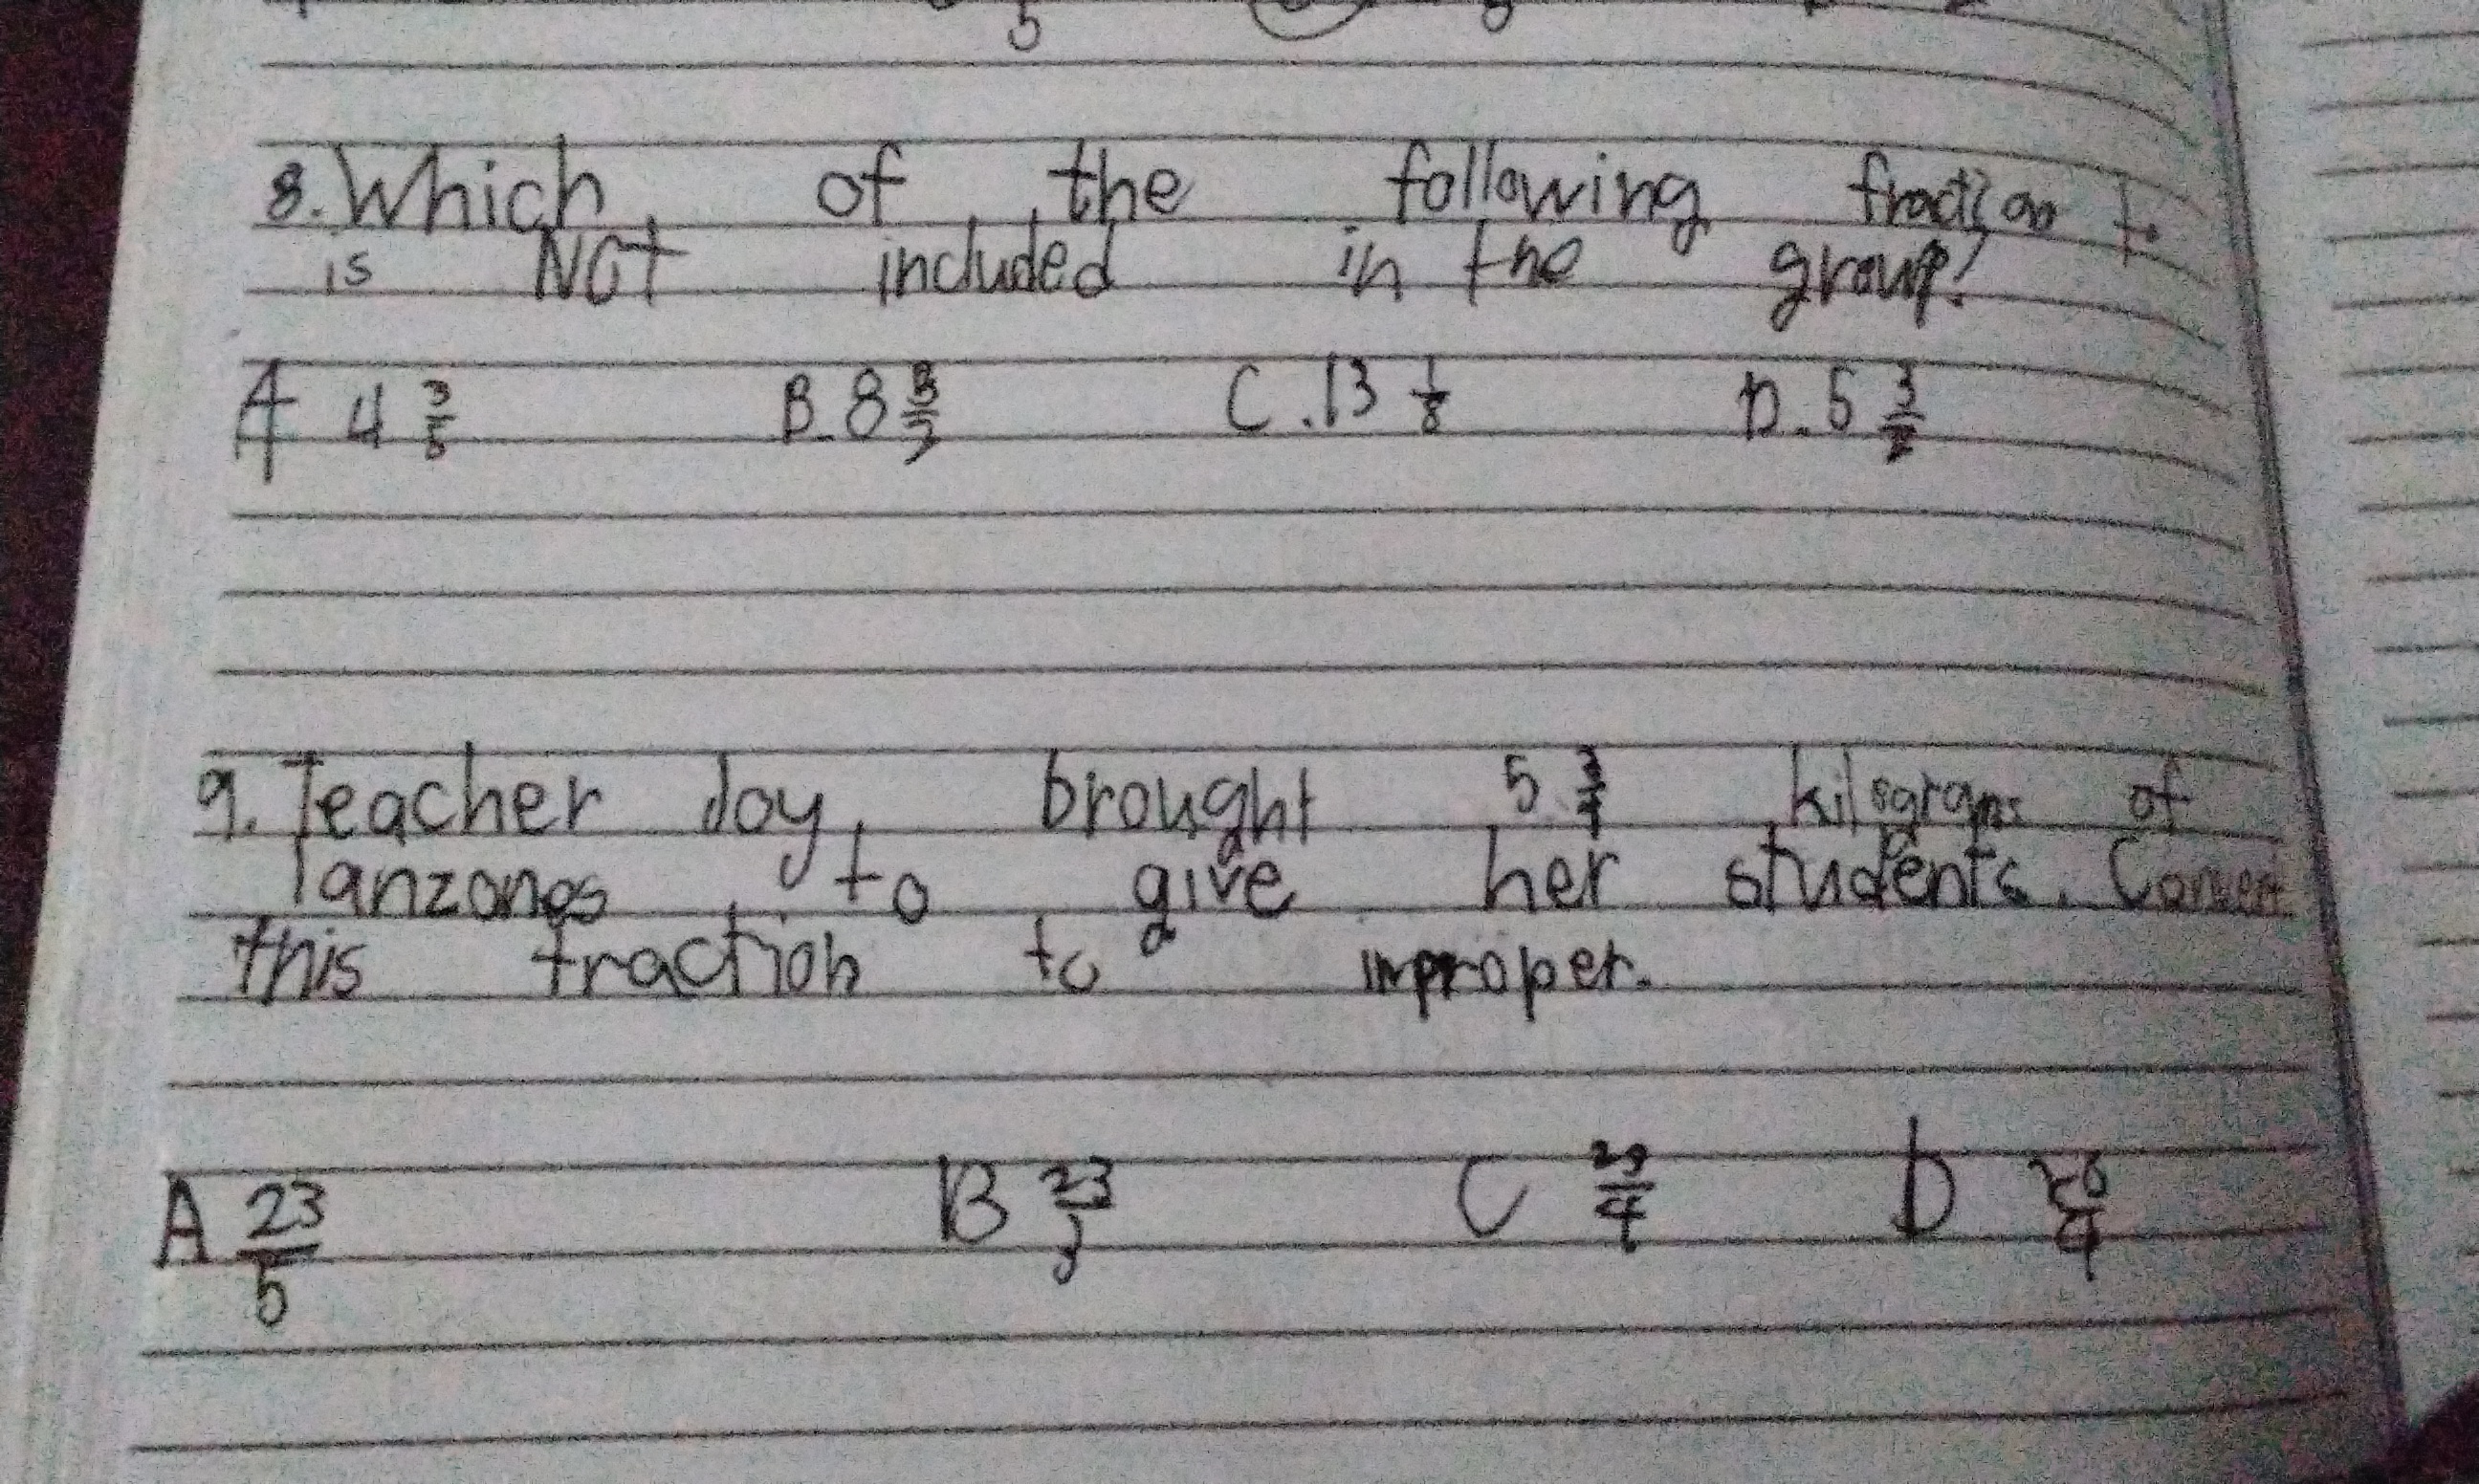 8. Which of the following fraction
is NOT included in the group?
A 4 3/5 B. 8 3/7 C. 13 1/8 D. 5 3/2
9. Teacher Joy brought 5 3/4 kilograms of
lanzones to give her students. Convert
this fraction to improper.
A 23/5 B 23/ C /4 D 26/4